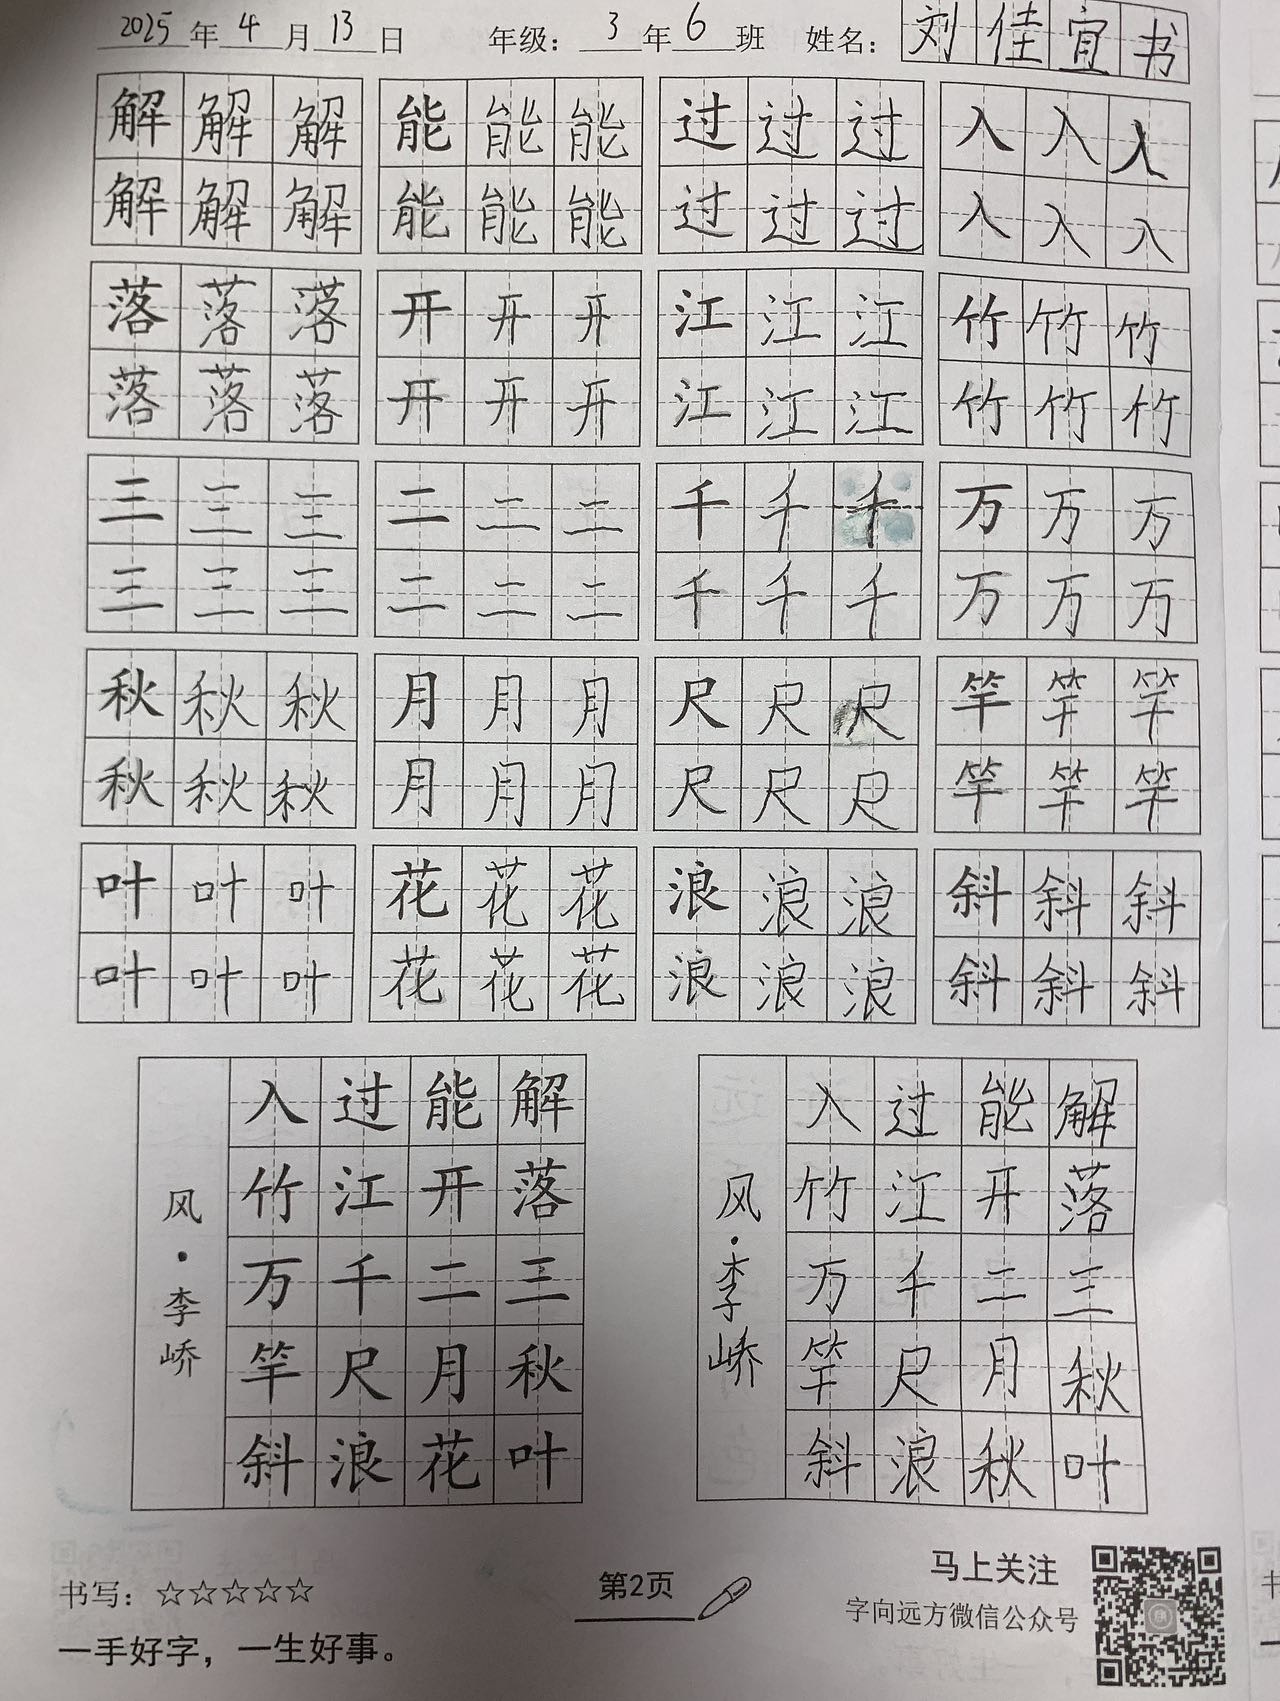 2025年4月13日 年级：3年6班 姓名：刘佳宜书
解解解 能能能 过过过 入入入
解解解 能能能 过过过 入入入
落落落 开开开 江江江 竹竹竹
落落落 开开开 江江江 竹竹竹
三三三 二二二 千千千 万万万
三三三 二二二 千千千 万万万
秋秋秋 月月月 尺尺尺 竿竿竿
秋秋秋 月月月 尺尺尺 竿竿竿
叶叶叶 花花花 浪浪浪 斜斜斜
叶叶叶 花花花 浪浪浪 斜斜斜
解落三秋叶
能开二月花
过江千尺浪
入竹万竿斜
风·李峤
解落三秋叶
能开二月秋
过江千尺浪
入竹万竿斜
风·李峤
书写：☆☆☆☆☆
一手好字，一生好事。
第2页
马上关注
字向远方微信公众号